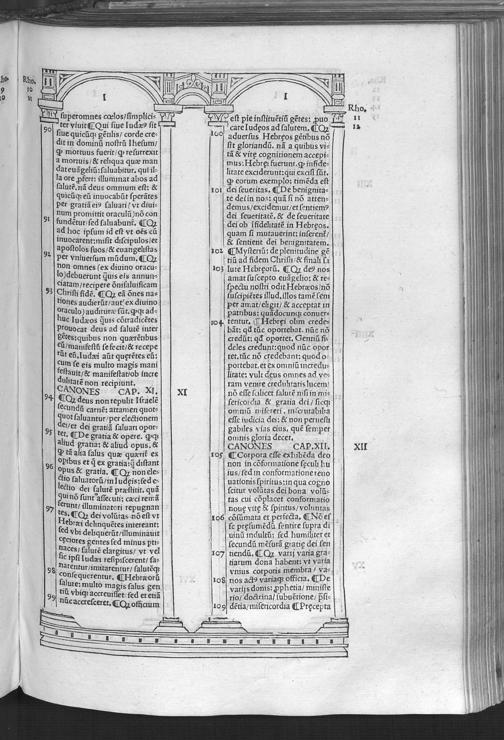 Rho.
10
11
I
superomnes cœlos/simplici-
ter viuit ¶Qui siue Iudæꝰ sit
90 siue quicūqꝫ gētilis/corde cre-
dit im dominū nostrū Ihesum/
qꝫ mortuus fuerit/qꝫ resurrexit
a mortuis/& reliqua quæ man
dat euāgeliū: saluabitur, qui il-
la ore
salutē, nā deus omnium est: &
quicūqꝫ eū inuocabūt sperātes
per gratiā saluari/vt diui-
num promittit oraculū) nō con
91 fundētur/sed saluabunt. ¶Qꝫ
ad hoc ipsum id est vt oēs eū
inuocarent: misit discipulos/et
apostolos suos/& euangelistas
92 per vniuersum mūdum. ¶Qꝫ
non omnes (ex diuino oracu-
lo) debuerunt
ciatam/recipere
93 Christi fidē. ¶Qꝫ eā ōnes na-
tiones audierūt/aut
oraculo) audituræ sūt. qꝫ ad-
huc Iudæos
prouocat deus ad salutē inter
gētes: quibus non quærētibus
eū/manifestū se fecit/& recepe
rūt eū. Iudæi aūt quærētes eū:
cum se eis multo magis mani
festauit/& manifestat/ob incre
dulitatē non recipiunt.
CANONES CAP. XI.
94 ¶Qꝫ deus non repulit Israelē
secundū carnē: attamen quot-
quot saluantur/per electionem
dei/et dei gratiā saluari opor-
95 tet. ¶De gratia & opere. qꝫ
aliud gratia: & aliud opus, &
qꝫ tā alia salus quæ quærit ex
opibus et ex gratia: distant
96 opus & gratia. ¶Qꝫ non ele-
ctio saluatorū/in Iudæis: sed e-
lectio dei salutē præstitit. quā
qui nō sunt assecuti: cæci remā
serunt/illuminatori repugnan
97 tes. ¶Qꝫ dei volūtas nō est vt
Hebræi delinquētes intereant:
sed vbi deliquerūt/illuminauit
gentes sed minus
naces/salutē elargitus/vt vel
sic ipsi Iudæi respiscerent/sa-
narentur/imitarentur/salutēqꝫ
98 consequerentur. ¶Hebræorū
salute: multo magis salus gen
tiū vbiqꝫ accreuisset: sed et etiā
99 nūc accresceret. ¶Qꝫ officium
XI
I
est pie instituētiū gētes: puo
care Iudæos ad salutem. ¶Qꝫ
100 aduersus Hebræos gētibus nō
est gloriandū. nā a quibus vi-
tā & vitæ cognitionem accepi-
mus: Hebræi fuerunt. qꝫ infide-
litate exciderunt: qui excisi sūt.
qꝫ eorum exemplo: timēda est
101 dei seueritas. ¶De benignita-
te dei in nos: quā si nō atten-
demus/excidemur/et sentiemꝰ
dei seueritatē. & de seueritate
dei ob infidelitatē in Hebræos.
quam si mutauerint: inserent
& sentient dei benignitatem.
102 ¶Mysteriū: de plenitudine gē
tiū ad fidem Christi: & finali sa
103 lute Hebræorū. ¶Qꝫ deꝰ nos
amat suscepto euangelio: & re-
spectu nostri odit Hebræos/nō
suscipiētes illud, illos tamē sem
per amat/eligit/& acceptat in
patribus: quādocunqꝫ conuer-
104 tentur. ¶Hebræi olim crede-
bāt: qd tūc oportebat. nūc nō
credūt: qd oportet. Gentiū fi-
deles credunt: quod nūc opor
tet. tūc nō credebant: quod o-
portebat. et ex omniū incredu
litate: vult deus omnes ad ve-
ram venire credulitatis lucem:
nō esse scilicet salutē nisi in mi-
sericordia & gratia dei/sicqꝫ
omniū misereri. inscrutabilia
esse iudicia dei: & non peruesti
gabiles vias eius. quē semper
omnis gloria decet.
CANONES CAP. XII.
105 ¶Corpora esse exhibēda deo
non in cōformatione seculi hu
ius/sed in cōformatione reno
uationis spiritus: in qua cogno
scitur volūtas dei bona volū-
tas cui cōplacet conformatio
nouæ vitæ & spiritus/voluntas
106 cōsūmata et perfecta. ¶Nō es
se præsumēdū sentire supra di
uinū indultū: sed humiliter et
secundū mēsurā gratiæ dei sen
107 tiendū. ¶Qꝫ varij varia gra-
tiarum dona habent: vt varia
vnius corporis membra/va-
108 rios actꝰ variaqꝫ officia. ¶De
varijs donis: pphetia/ministe
rio/doctrina/subuētione/
109 dētia/misericordia ¶Præcepta
Rho.
11
12
XII